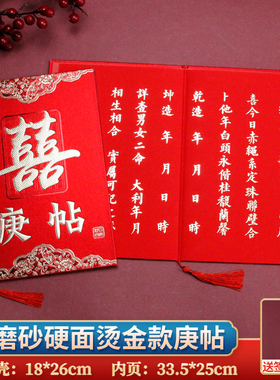 囍
庚帖
喜今日赤繩系定珠聯璧合
卜他年白頭永偕桂馥蘭馨
乾造 年 月 日 時
坤造 年 月 日 時
詳查男女二命 大利年月
相生相合 實屬可
磨砂硬面烫金款庚帖
壳：18*26cm 内页：33.5*25cm
送签